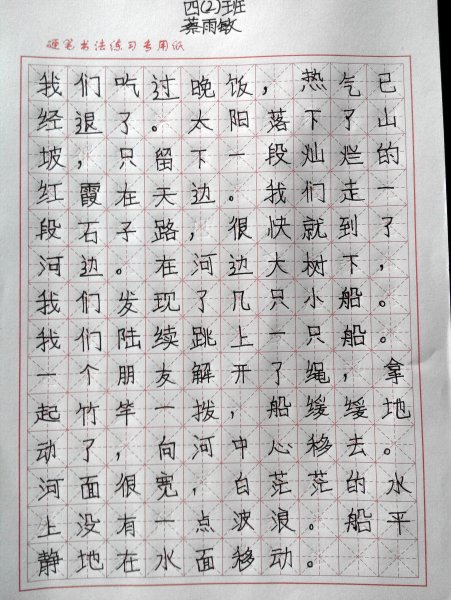 四(2)班
蔡雨敏
硬笔书法练习专用纸
我们吃过晚饭，热气已
经退了。太阳落下了山
坡，只留下一段灿烂的
红霞在天边。我们走一
段石子路，很快就到了
河边。在河边大树下，
我们发现了几只小船。
我们陆续跳上一只船。
一个朋友解开了绳，拿
起竹竿一拨，船缓缓地
动了，向河中心移去。
河面很宽，白茫茫的水
上没有一点波浪。船平
静地在水面移动。